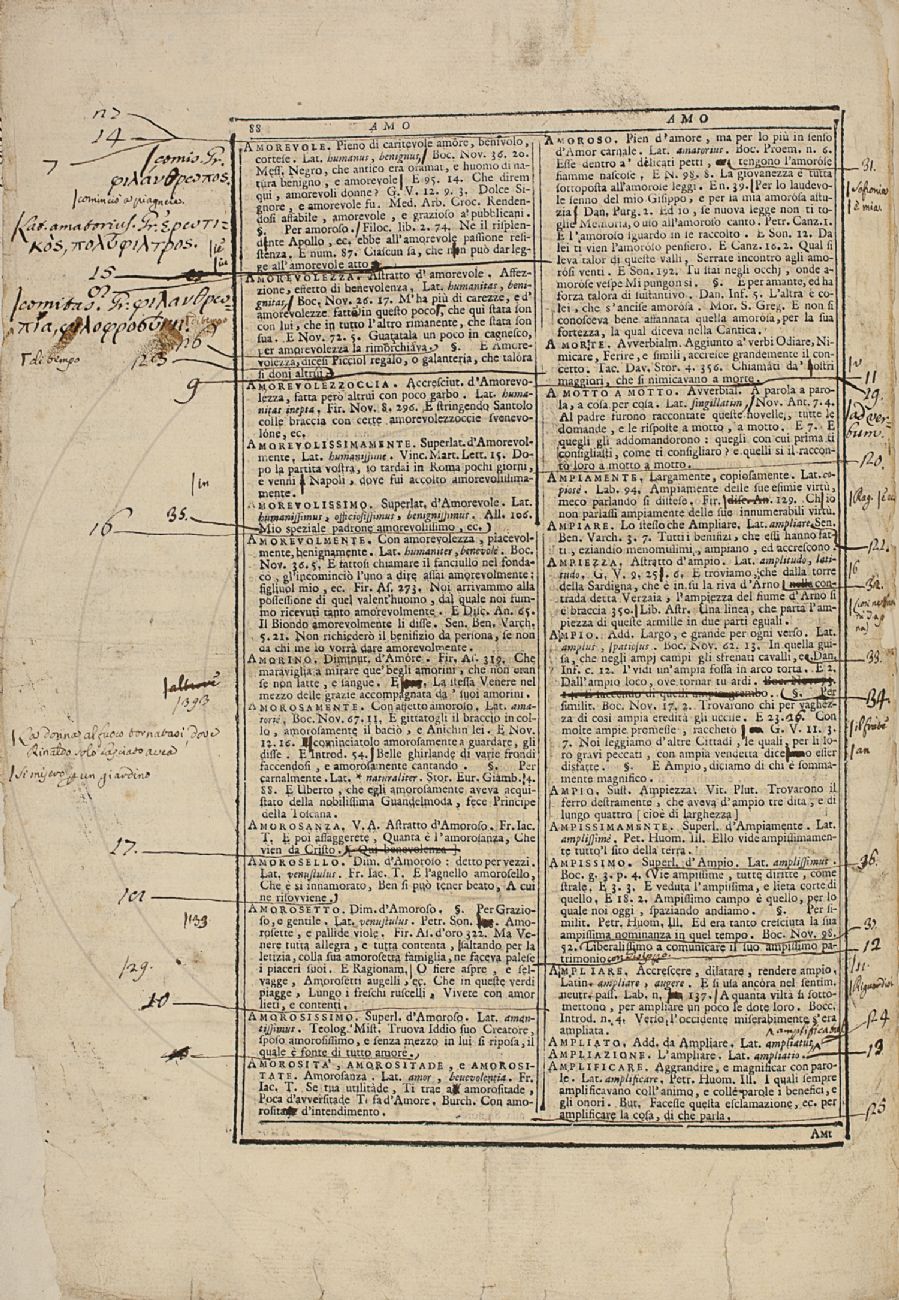 88 AMO AMO
AMOREVOLE. Pieno di caritevole amore, benivolo,
cortese. Lat. humanus, benignus, Boc. Nov. 36. 20.
Mess. Negro, che antico era oramai, e huomo di na-
tura benigno, e amorevole E 95. 14. Che direm
qui, amorevoli donne? G. V. 12. 9. 3. Dolce Si-
gnore, e amorevole fu. Med. Arb. Croc. Renden-
dosi affabile, amorevole, e grazioso a' pubblicani.
§. Per amoroso. Filoc. lib. 2. 74. Ne il risplen-
dente Apollo, ec. ebbe all'amorevole passione resi-
stenza. E num. 87. Ciascun sa, che non può dar leg-
ge all'amorevole atto
AMOREVOLEZZA. Astratto d'amorevole. Affe-
zione, effetto di benevolenza, Lat. humanitas, beni-
gnitas, Boc. Nov. 26. 17. M'ha più di carezze, e d'
amorevolezze fatte in questo poco, che qui stata son
con lui, che in tutto l'altro rimanente, che stata son
sua. E Nov. 72. 5. Guatatala un poco in cagnesco,
per amorevolezza la rimorchiava. §. E Amore-
volezza, dicesi Picciol regalo, o galanteria, che talora
si doni altrui
AMOREVOLEZZOCCIA. Accresciut. d'Amorevo-
lezza, fatta però altrui con poco garbo. Lat. huma-
nitas inepta, Fir. Nov. 8. 296. E stringendo Santolo
colle braccia con certe amorevolezzoccie svenevo-
lone, ec.
AMOREVOLISSIMAMENTE. Superlat. d'Amorevol-
mente. Lat. humanissime. Vinc. Mart. Lett. 15. Do-
po la partita vostra, io tardai in Roma pochi giorni,
e venni Napoli, dove fui accolto amorevolissima-
mente.
AMOREVOLISSIMO. Superlat. d'Amorevole. Lat.
humanissimus, officiosissimus, benignissimus. All. 106.
Mio speziale padrone amorevolissimo, ec.
AMOREVOLMENTE. Con amorevolezza, piacevol-
mente, benignamente. Lat. humaniter, benevole. Boc.
Nov. 36. 5. E fattosi chiamare il fanciullo nel fonda-
co, gl'incominciò l'uno a dire assai amorevolmente:
figliuol mio, ec. Fir. As. 273. Noi arrivammo alla
possessione di quel valent'huomo, dal quale noi fum-
mo ricevuti tanto amorevolmente. E Disc. An. 65.
Il Biondo amorevolmente li disse. Sen. Ben. Varch.
5. 21. Non richiederò il benifizio da persona, se non
da chi me lo vorrà dare amorevolmente.
AMORINO. Diminut. d'Amore. Fir. As. 319. Che
maraviglia a mirare que' begli amorini, che non eran
se non latte, e sangue. E La stessa Venere nel
mezzo delle grazie accompagnata da' suoi amorini.
AMOROSAMENTE. Con affetto amoroso, Lat. ama-
torie, Boc. Nov. 67. 11. E gittatogli il braccio in col-
lo, amorosamente il baciò, e Anichin lei. E Nov.
12. 16. cominciatolo amorosamente a guardare, gli
disse. E Introd. 54. Belle ghirlande di varie frondi
faccendosi, e amorosamente cantando. §. Per
carnalmente. Lat. * naturaliter. Stor. Eur. Giamb. 4.
88. E Uberto, che egli amorosamente aveva acqui-
stato della nobilissima Guandelmoda, fece Principe
della Toscana.
AMOROSANZA, V. A. Astratto d'Amoroso. Fr. Iac.
T. E poi assaggerete, Quanta è l'amorosanza, Che
vien da Cristo. Qui benevolenza
AMOROSELLO. Dim. d'Amoroso: detto per vezzi.
Lat. venustulus. Fr. Iac. T. E l'agnello amorosello,
Che è si innamorato, Ben si può tener beato, A cui
ne risovviene.
AMOROSETTO. Dim. d'Amoroso. §. Per Grazio-
so, e gentile. Lat. venustulus. Petr. Son. Amo-
rosette, e pallide viole. Fir. As. d'oro 322. Ma Ve-
nere tutta allegra, e tutta contenta, saltando per la
letizia, colla sua amorosetta famiglia, ne faceva palese
i piaceri suoi. E Ragionam. O fiere aspre, e sel-
vagge, Amorosetti augelli, ec. Che in queste verdi
piagge, Lungo i freschi ruscelli, Vivete con amor
lieti, e contenti.
AMOROSISSIMO. Superl. d'Amoroso. Lat. aman-
tissimus. Teolog. Mist. Truova Iddio suo Creatore,
sposo amorosissimo, e senza mezzo in lui si riposa, il
quale è fonte di tutto amore.
AMOROSITÀ, AMOROSITADE, e AMOROSI-
TATE. Amorosanza. Lat. amor, benevolentia. Fr.
Iac. T. Se tua utilitade, Ti trae a amorositade,
Poca d'avversitade Ti sa d'Amore. Burch. Con amo-
rositade d'intendimento.
AMOROSO. Pien d'amore, ma per lo più in senso
d'Amor carnale. Lat. amatorius. Boc. Proem. n. 6.
Esse dentro a' delicati petti, tengono l'amorose
fiamme nascose. E N. 98. 8. La giovanezza è tutta
sottoposta all'amorose leggi. En. 39. Per lo laudevo-
le senno del mio Gisippo, e per la mia amorosa astu-
zia Dan. Purg. 2. Ed io, se nuova legge non ti to-
glie Memoria, o uso all'amoroso canto. Petr. Canz. 1.
E l'amoroso sguardo in se raccolto. E Son. 12. Da
lei ti vien l'amoroso pensiero. E Canz. 16. 2. Qual si
leva talor di queste valli, Serrate incontro agli amo-
rosi venti. E Son. 192. Tu stai negli occhj, onde a-
morose vespe Mi pungon si. §. E per amante, ed ha
forza talora di sustantivo. Dan. Inf. 5. L'altra è co-
lei, che s'ancise amorosa. Mor. S. Greg. E non si
conosceva bene affannata questa amorosa, per la sua
fortezza, la qual diceva nella Cantica.
A MORTE. Avverbialm. Aggiunto a' verbi Odiare, Ni-
micare, Ferire, e simili, accresce grandemente il con-
cetto. Tac. Dav. Stor. 4. 356. Chiamati da' nostri
maggiori, che si nimicavano a morte.
A MOTTO A MOTTO. Avverbial. A parola a paro-
la, a cosa per cosa. Lat. singillatim, Nov. Ant. 7. 4.
Al padre furono raccontate queste novelle, tutte le
domande, e le risposte a motto, a motto. E 7. E
quegli gli addomandorono: quegli con cui prima ti
consigliasti, come ti consigliaro? e quelli si il raccon-
tò loro a motto a motto.
AMPIAMENTE. Largamente, copiosamente. Lat. co-
piose. Lab. 94. Ampiamente delle sue esimie virtù,
meco parlando si distese. Fir. disc. An. 129. Ch io
non parlassi ampiamente delle sue innumerabili virtù.
AMPIARE. Lo stesso che Ampliare. Lat. ampliare, Sen.
Ben. Varch. 3. 7. Tutti i benifizi, che essi hanno fat-
ti, eziandio menomulimi, ampiano, ed accrescono.
AMPIEZZA. Astratto d'ampio. Lat. amplitudo, lati-
tudo. G. V. 9. 25. 6. E troviamo, che dalla torre
della Sardigna, che è in su la riva d'Arno nella con-
trada detta Verzaia, l'ampiezza del fiume d'Arno si
è braccia 350. Lib. Astr. Una linea, che parta l'am-
piezza di queste armille in due parti eguali.
AMPIO. Add. Largo, e grande per ogni verso. Lat.
amplus, spatiosus. Boc. Nov. 62. 13. In quella gui-
sa, che negli ampj campi gli sfrenati cavalli, ec. Dan.
Inf. c. 12. I' vidi un'ampia fossa in arco torta. E 2.
Dall'ampio loco, ove tornar tu ardi. Boc. Nov. 73.
§. Per
similit. Boc. Nov. 17. 2. Trovarono chi per vaghez-
za di così ampia eredità gli uccise. E 23. 26. Con
molte ampie promesse, racchetò G. V. 11. 3.
7. Noi leggiamo d'altre Cittadi, le quali, per li lo-
ro gravi peccati, con ampia vendetta dice esser
disfatte. §. E Ampio, diciamo di chi è somma-
mente magnifico.
AMPIO, Sust. Ampiezza. Vit. Plut. Trovarono il
ferro destramente, che aveva d'ampio tre dita, e di
lungo quattro [cioè di larghezza]
AMPISSIMAMENTE. Superl. d'Ampiamente. Lat.
amplissime. Pet. Huom. Ill. Ello vide ampissimamen-
te tutto'l sito della terra.
AMPISSIMO. Superl. d'Ampio. Lat. amplissimus.
Boc. g. 3. p. 4. Vie ampissime, tutte diritte, come
strale. E 3. 3. E veduta l'ampissima, e lieta corte di
quello. E 18. 2. Ampissimo campo è quello, per lo
quale noi oggi, spaziando andiamo. §. Per si-
milit. Petr. Huom. Ill. Ed era tanto cresciuta la sua
ampissima nominanza in quel tempo. Boc. Nov. 98.
52. Liberalissimo a comunicare il suo ampissimo pa-
trimonio con Bisogno
AMPLIARE. Accrescere, dilatare, rendere ampio.
Latin. ampliare, augere. E si usa ancora nel sentim.
neutr. pass. Lab. n. 137. A quanta viltà si sotto-
mettono, per ampliare un poco le dote loro. Bocc.
Introd. n. 4. Verso l'occidente miserabilmente s'era
ampliata.
AMPLIATO, Add. da Ampliare. Lat. ampliatus
AMPLIAZIONE. L'ampliare. Lat. ampliatio.
AMPLIFICARE. Aggrandire, e magnificar con paro-
le. Lat. amplificare. Petr. Huom. Ill. I quali sempre
amplificavano coll'animo, e colle parole i benefici, e
gli onori. But. Facesse questa esclamazione, ec. per
amplificare la cosa, di che parla.
AMI
14
7
comis. Gr.
φιλανθρωπος.
comincio a piagnere
Lat. amatorius. Gr. ἐρωτι-
κὸς, πολύφιλτρος.
15
comitas. Gr. φιλανθρω-
πία, φιλοφροσύνη.
26
123
9
in
35.
16
1393
La donna al fuoco
Rinaldo solo
Si misero un giardino
17.
101
133
129.
10
31.
Sofronia
È mia
11
29.
ad ver-
bum.
120.
122.
16
32.
33.
34.
an
36.
37.
12
11.
124
13
125